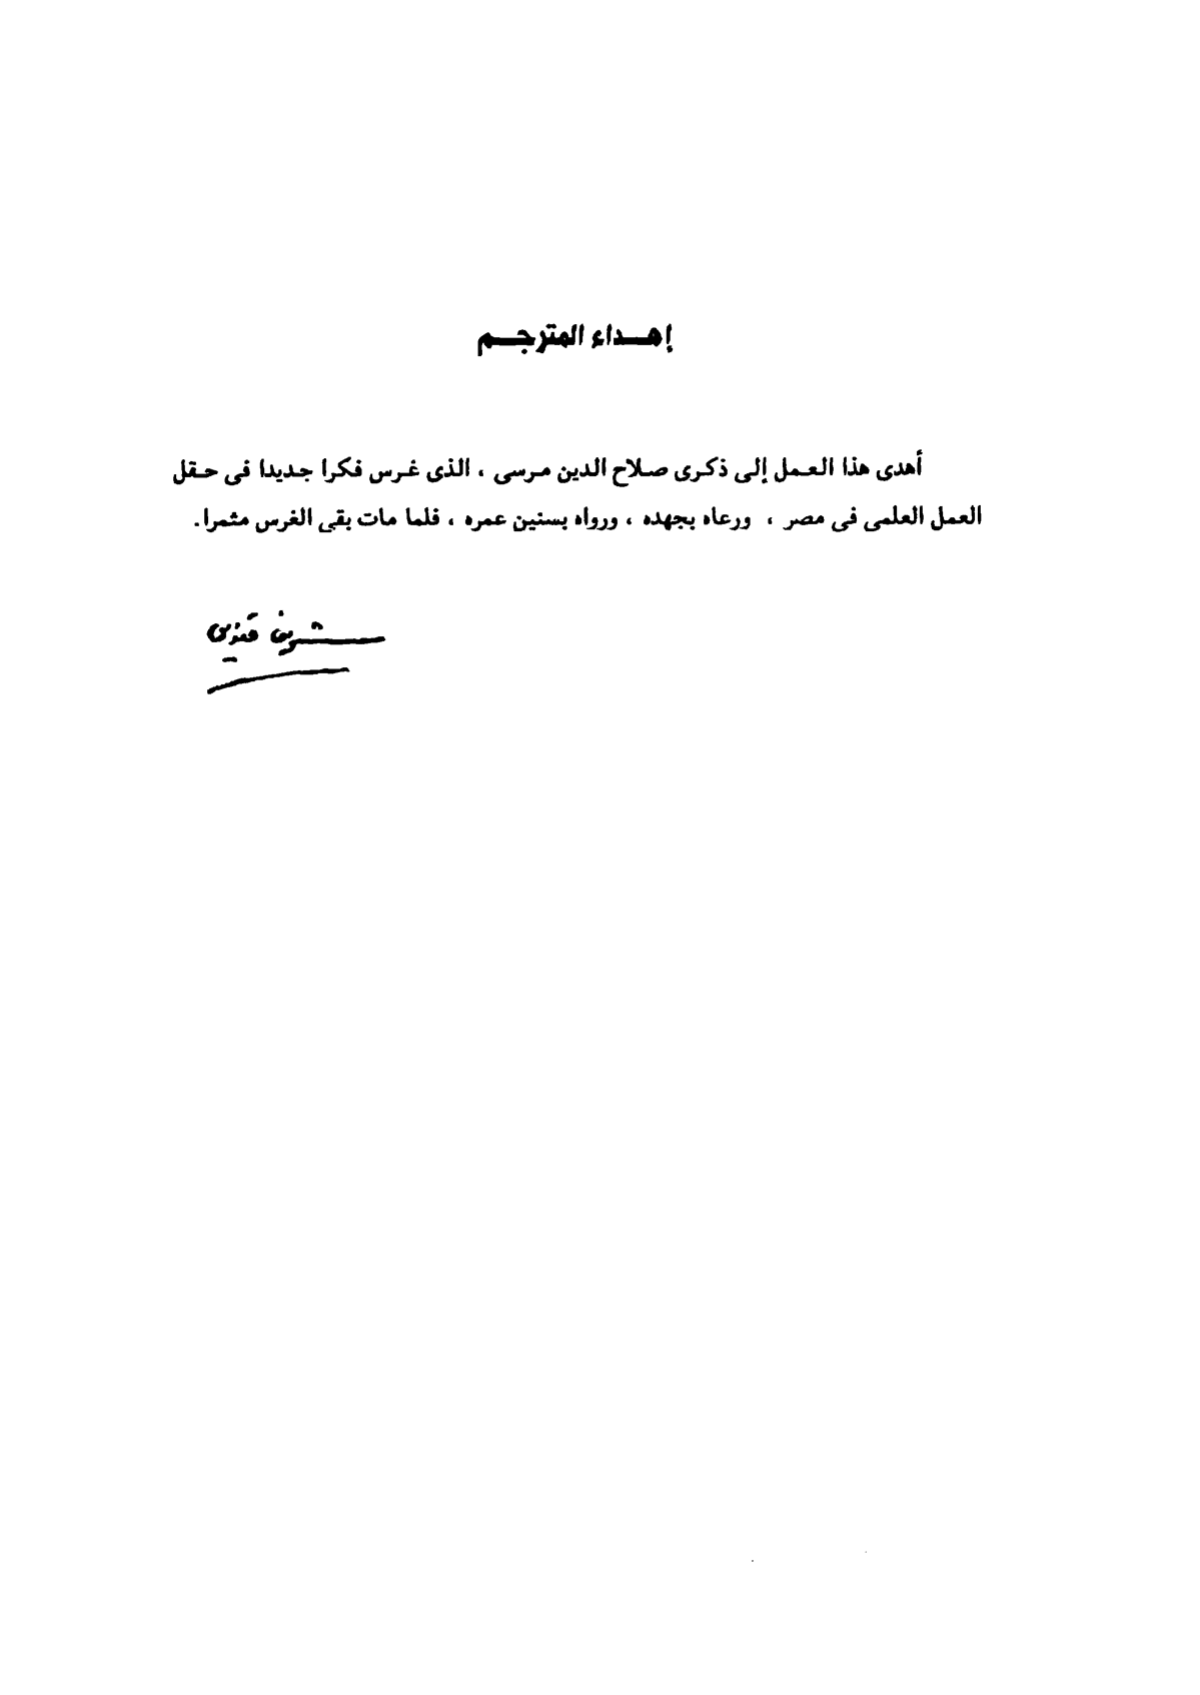 إهداء المترجم
أهدى هذا العمل إلى ذكرى صلاح الدين مرسى ، الذى غرس فكرا جديدا فى حقل
العمل العلمى فى مصر ، ورعاه بجهده ، ورواه بسنين عمره ، فلما مات بقى الغرس مثمرا.
شريف